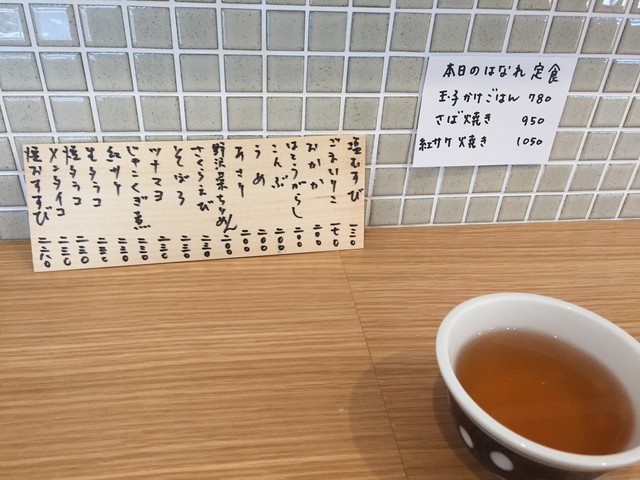 塩むすび 一三〇
ごまいりこ 一七〇
おかか 二〇〇
はとうがらし 二〇〇
こんぶ 二〇〇
うめ 二〇〇
あさり 二〇〇
野沢菜ちりめん 二〇〇
さくらえび 二三〇
そぼろ 二三〇
ツナマヨ 二三〇
じゃこくぎ煮 二三〇
紅サケ 二三〇
生タラコ 二三〇
焼タラコ 二三〇
メンタイコ 二三〇
焼おむすび 二六〇
本日のはなれ定食
玉子かけごはん 780
さば焼き 950
紅サケ焼き 1050